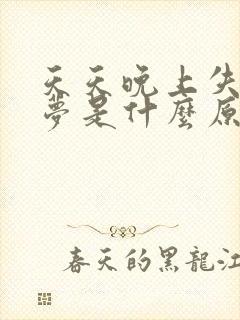 天天晚上失
夢是什麼原
春天的黑龍江